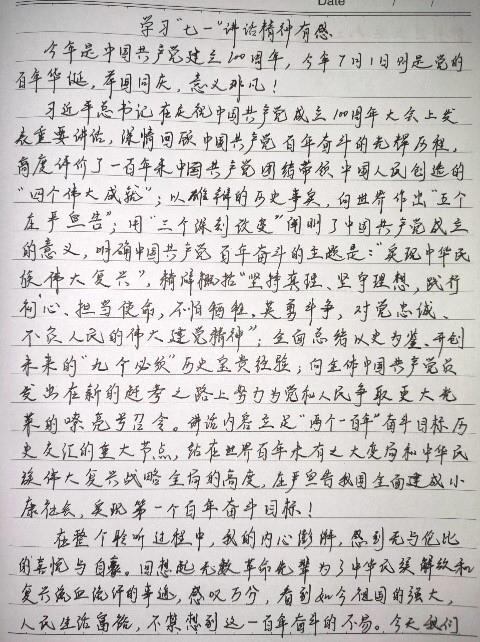 Date / /
学习“七一”讲话精神有感
今年是中国共产党建立100周年，今年7月1日则是党的
百年华诞，举国同庆，意义非凡！
习近平总书记在庆祝中国共产党成立100周年大会上发
表重要讲话，深情回顾中国共产党百年奋斗的光辉历程，
高度评价了一百年来中国共产党团结带领中国人民创造的
“四个伟大成就”；以雄辩的历史事实，向世界作出“五个
庄严宣告”；用“三个深刻改变”阐明了中国共产党成立
的意义，明确中国共产党百年奋斗的主题是：“实现中华民
族伟大复兴”，精辟概括“坚持真理、坚守理想，践行
初心、担当使命，不怕牺牲、英勇斗争，对党忠诚、
不负人民的伟大建党精神”；全面总结以史为鉴、开创
未来的“九个必须”历史宝贵经验；向全体中国共产党员
发出在新的赶考之路上努力为党和人民争取更大光
荣的嘹亮号召令。讲话内容立足“两个一百年”奋斗目标历
史交汇的重大节点，站在世界百年未有之大变局和中华民
族伟大复兴战略全局的高度，庄严宣告我国全面建成小
康社会，实现第一个百年奋斗目标！
在整个聆听过程中，我的内心澎湃，感到无与伦比
的喜悦与自豪。回想起无数革命先辈为了中华民族解放和
复兴流血流汗的事迹，感叹万分，看到如今祖国的强大，
人民生活富饶，不禁想到这一百年奋斗的不易。今天我们